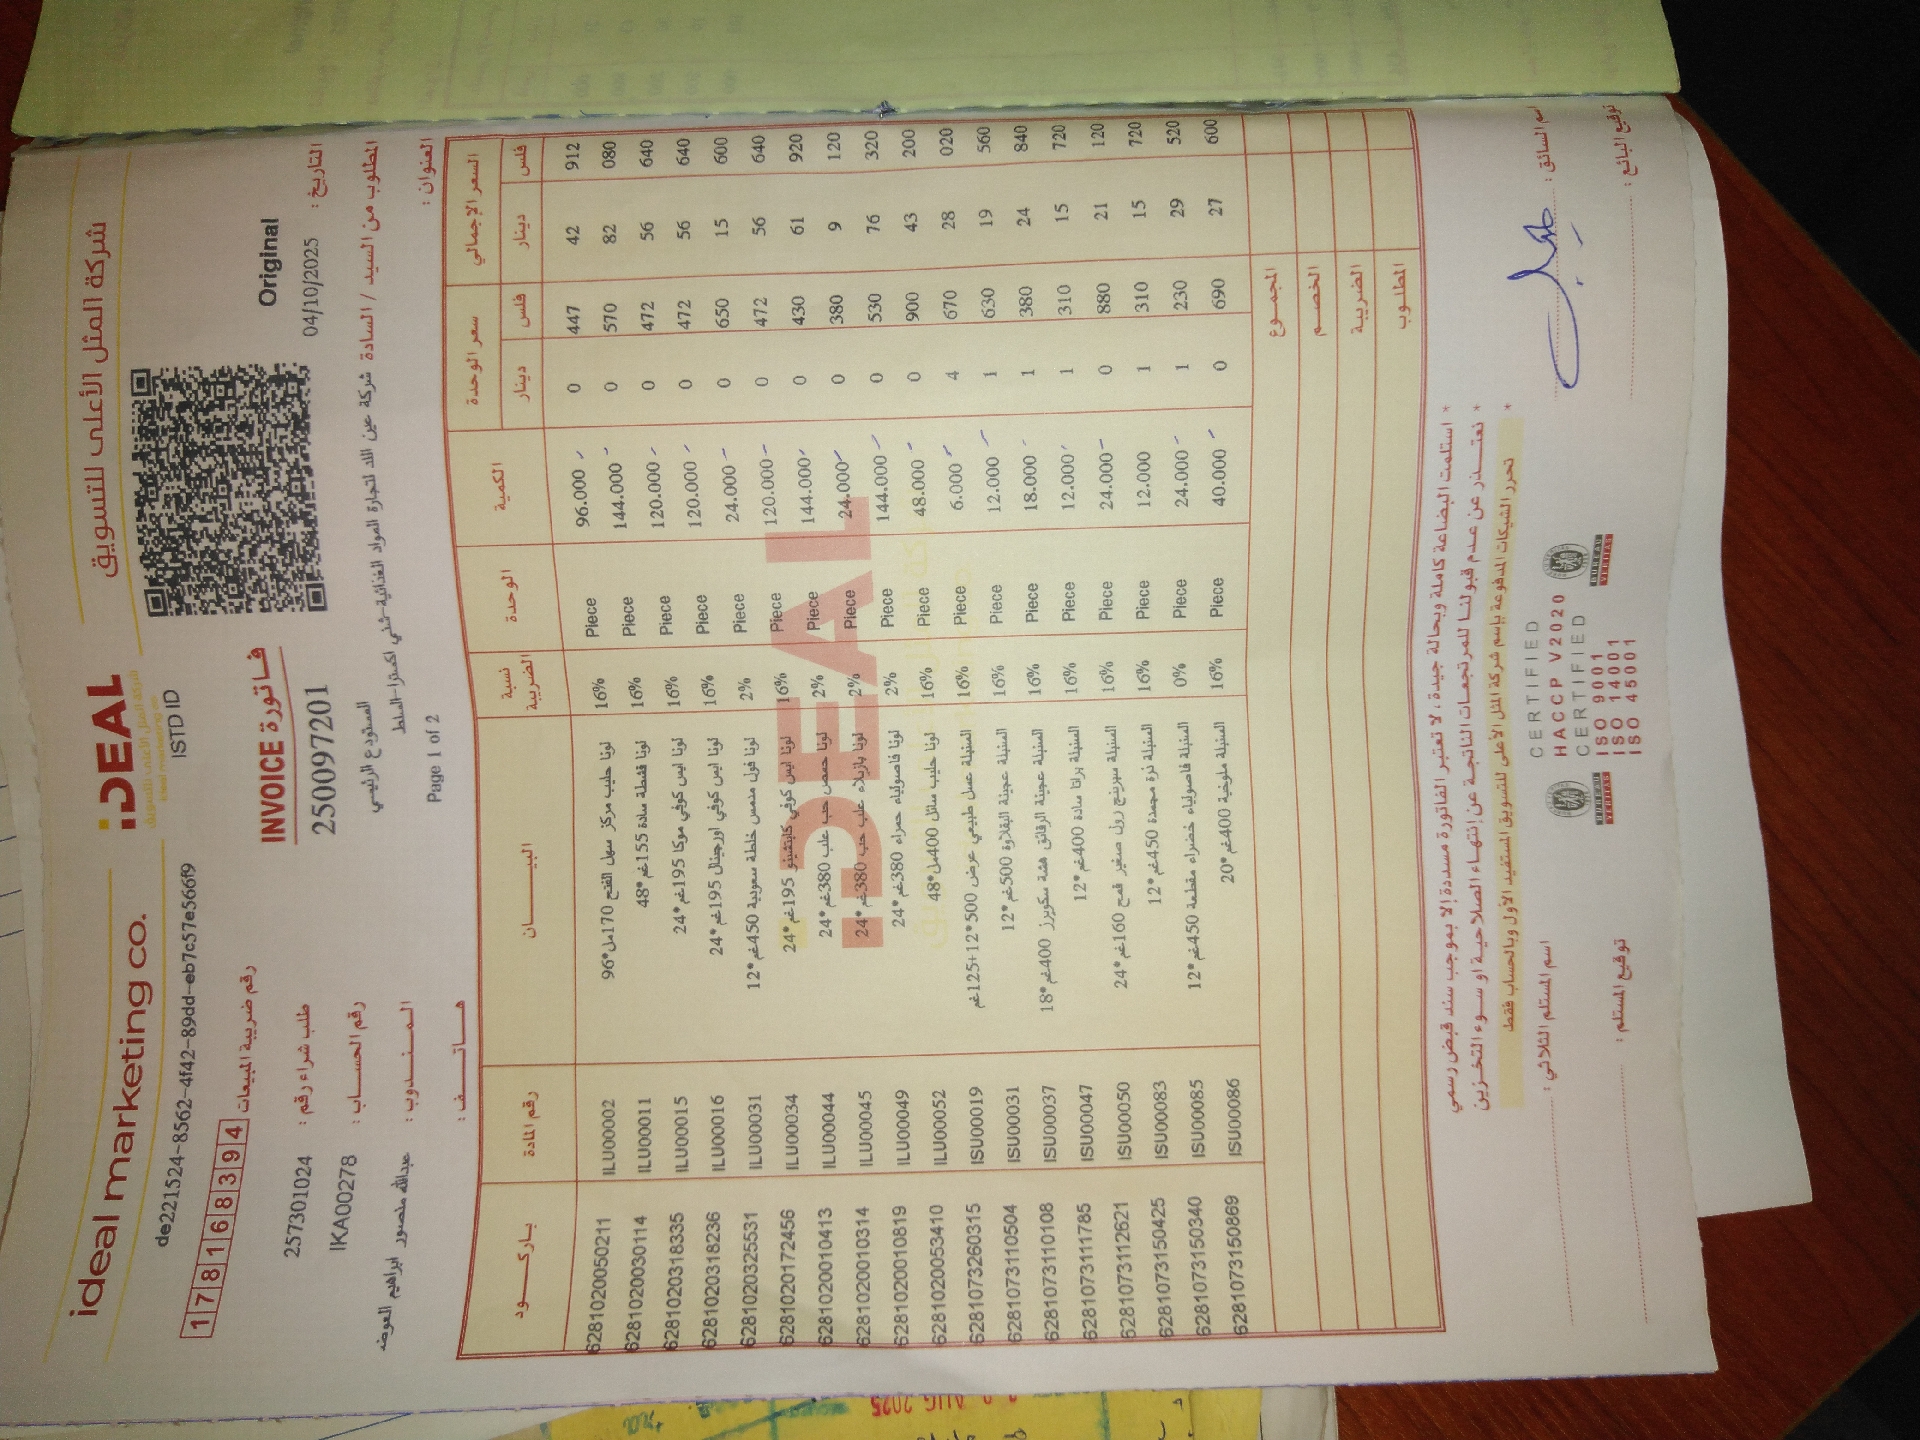 ideal marketing co.
iDEAL
شركة المثل الأعلى للتسويق
شركة المثل الأعلى للتسويق
ideal marketing co.
de221524-8562-4f42-89dd-eb7c57e566f9
ISTD ID
178168394 رقم ضريبة المبيعات
INVOICE فاتورة
Original
257301024 طلب شراء رقم :
250097201
04/10/2025 التاريخ :
IKA00278 رقم الحساب :
المستودع الرئيسي
المطلوب من السيد / السادة شركة عين اللد لتجارة المواد الغذائية-شفي اكسترا-السلط
عبدالله منصور ابراهيم العوضه المندوب :
هاتف :
Page 1 of 2
العنوان :
باركود رقم المادة البيان نسبة الضريبة الوحدة الكمية سعر الوحدة السعر الإجمالي
دينار فلس دينار فلس
6281020050211 ILU00002 لونا حليب مركز سهل الفتح 170مل*96 16% Piece 96.000 0 447 42 912
6281020030114 ILU00011 لونا قشطة سادة 155غم*48 16% Piece 144.000 0 570 82 080
6281020318335 ILU00015 لونا ايس كوفي موكا 195غم*24 16% Piece 120.000 0 472 56 640
6281020318236 ILU00016 لونا ايس كوفي اورجينال 195غم*24 16% Piece 120.000 0 472 56 640
6281020325531 ILU00031 لونا فول مدمس خلطة سعودية 450غم*12 2% Piece 24.000 0 650 15 600
6281020172456 ILU00034 لونا ايس كوفي كابتشينو 195غم*24 16% Piece 120.000 0 472 56 640
6281020010413 ILU00044 لونا حمص حب علب 380غم*24 2% Piece 144.000 0 430 61 920
6281020010314 ILU00045 لونا بازيلاء علب حب 380غم*24 2% Piece 24.000 0 380 9 120
6281020010819 ILU00049 لونا فاصولياء حمراء 380غم*24 2% Piece 144.000 0 530 76 320
6281020053410 ILU00052 لونا حليب سائل 400مل*48 16% Piece 48.000 0 900 43 200
6281073260315 ISU00019 السنبلة عسل طبيعي عرض 500*12+125غم 16% Piece 6.000 4 670 28 020
6281073110504 ISU00031 السنبلة عجينة البقلاوة 500غم*12 16% Piece 12.000 1 630 19 560
6281073110108 ISU00037 السنبلة عجينة الرقائق هشة سكويرز 400غم*18 16% Piece 18.000 1 380 24 840
6281073111785 ISU00047 السنبلة براتا سادة 400غم*12 16% Piece 12.000 1 310 15 720
6281073112621 ISU00050 السنبلة سبرينج رول صغير قمح 160غم*24 16% Piece 24.000 0 880 21 120
6281073150425 ISU00083 السنبلة ذرة مجمدة 450غم*12 16% Piece 12.000 1 310 15 720
6281073150340 ISU00085 السنبلة فاصولياء خضراء مقطعة 450غم*12 0% Piece 24.000 1 230 29 520
6281073150869 ISU00086 السنبلة ملوخية 400غم*20 16% Piece 40.000 0 690 27 600
iDEAL
المجموع
الخصم
الضريبة
المطلوب
* استلمت البضاعة كاملة وبحالة جيدة ، لا تعتبر الفاتورة مسددة إلا بموجب سند قبض رسمي
* نعتذر عن عدم قبولنا للمرتجعات الناتجة عن إنتهاء الصلاحية او سوء التخزين
* تحرر الشيكات المدفوعة بإسم شركة المثل الأعلى للتسويق المستفيد الأول وبالحساب فقط
اسم المستلم الثلاثي :
اسم السائق :
توقيع المستلم :
توقيع البائع :
BUREAU VERITAS
CERTIFIED
HACCP V2020
CERTIFIED
ISO 9001
ISO 14001
ISO 45001
BUREAU VERITAS
AUG 2025